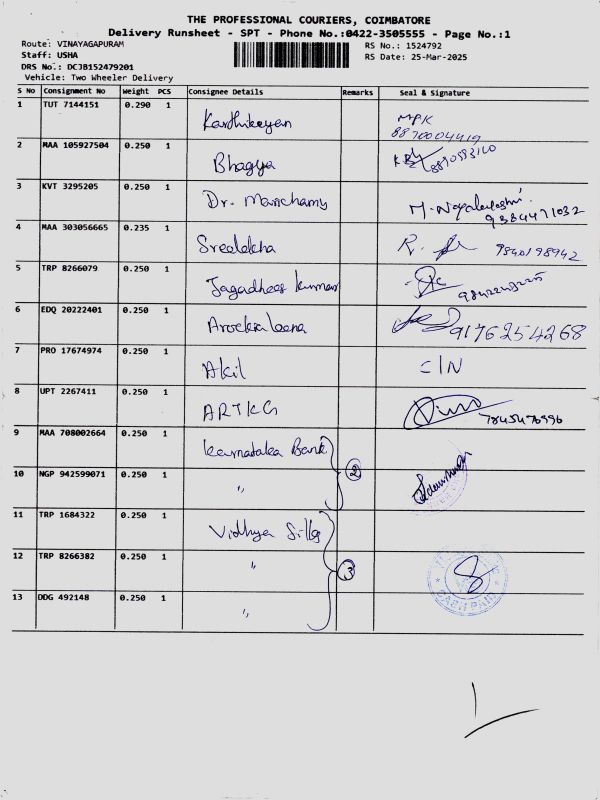 THE PROFESSIONAL COURIERS, COIMBATORE
Delivery Runsheet - SPT - Phone No.:0422-3505555 - Page No.:1
Route: VINAYAGAPURAM
RS No.: 1524792
Staff: USHA
RS Date: 25-Mar-2025
DRS No.: DCJB152479201
Vehicle: Two Wheeler Delivery
S No Consignment No Weight PCS Consignee Details Remarks Seal & Signature
1 TUT 7144151 0.290 1 Karthikeyan MPK
8870004419
2 MAA 105927504 0.250 1 Bhagya
3 KVT 3295205 0.250 1 Dr. Marichamy
9384471032
4 MAA 303056665 0.235 1 Sreelekha R. 9840198942
5 TRP 8266079 0.250 1 Jagadhees kumar
6 EDQ 20222401 0.250 1 Arockialeena 9176254268
7 PRO 17674974 0.250 1 Akil C/N
8 UPT 2267411 0.250 1 ARTKG 7845476996
9 MAA 708002664 0.250 1 Karnataka Bank
10 NGP 942599071 0.250 1 " 2
11 TRP 1684322 0.250 1 Vidhya Silks
12 TRP 8266382 0.250 1 " 3
CASH PAID
13 DDG 492148 0.250 1 "